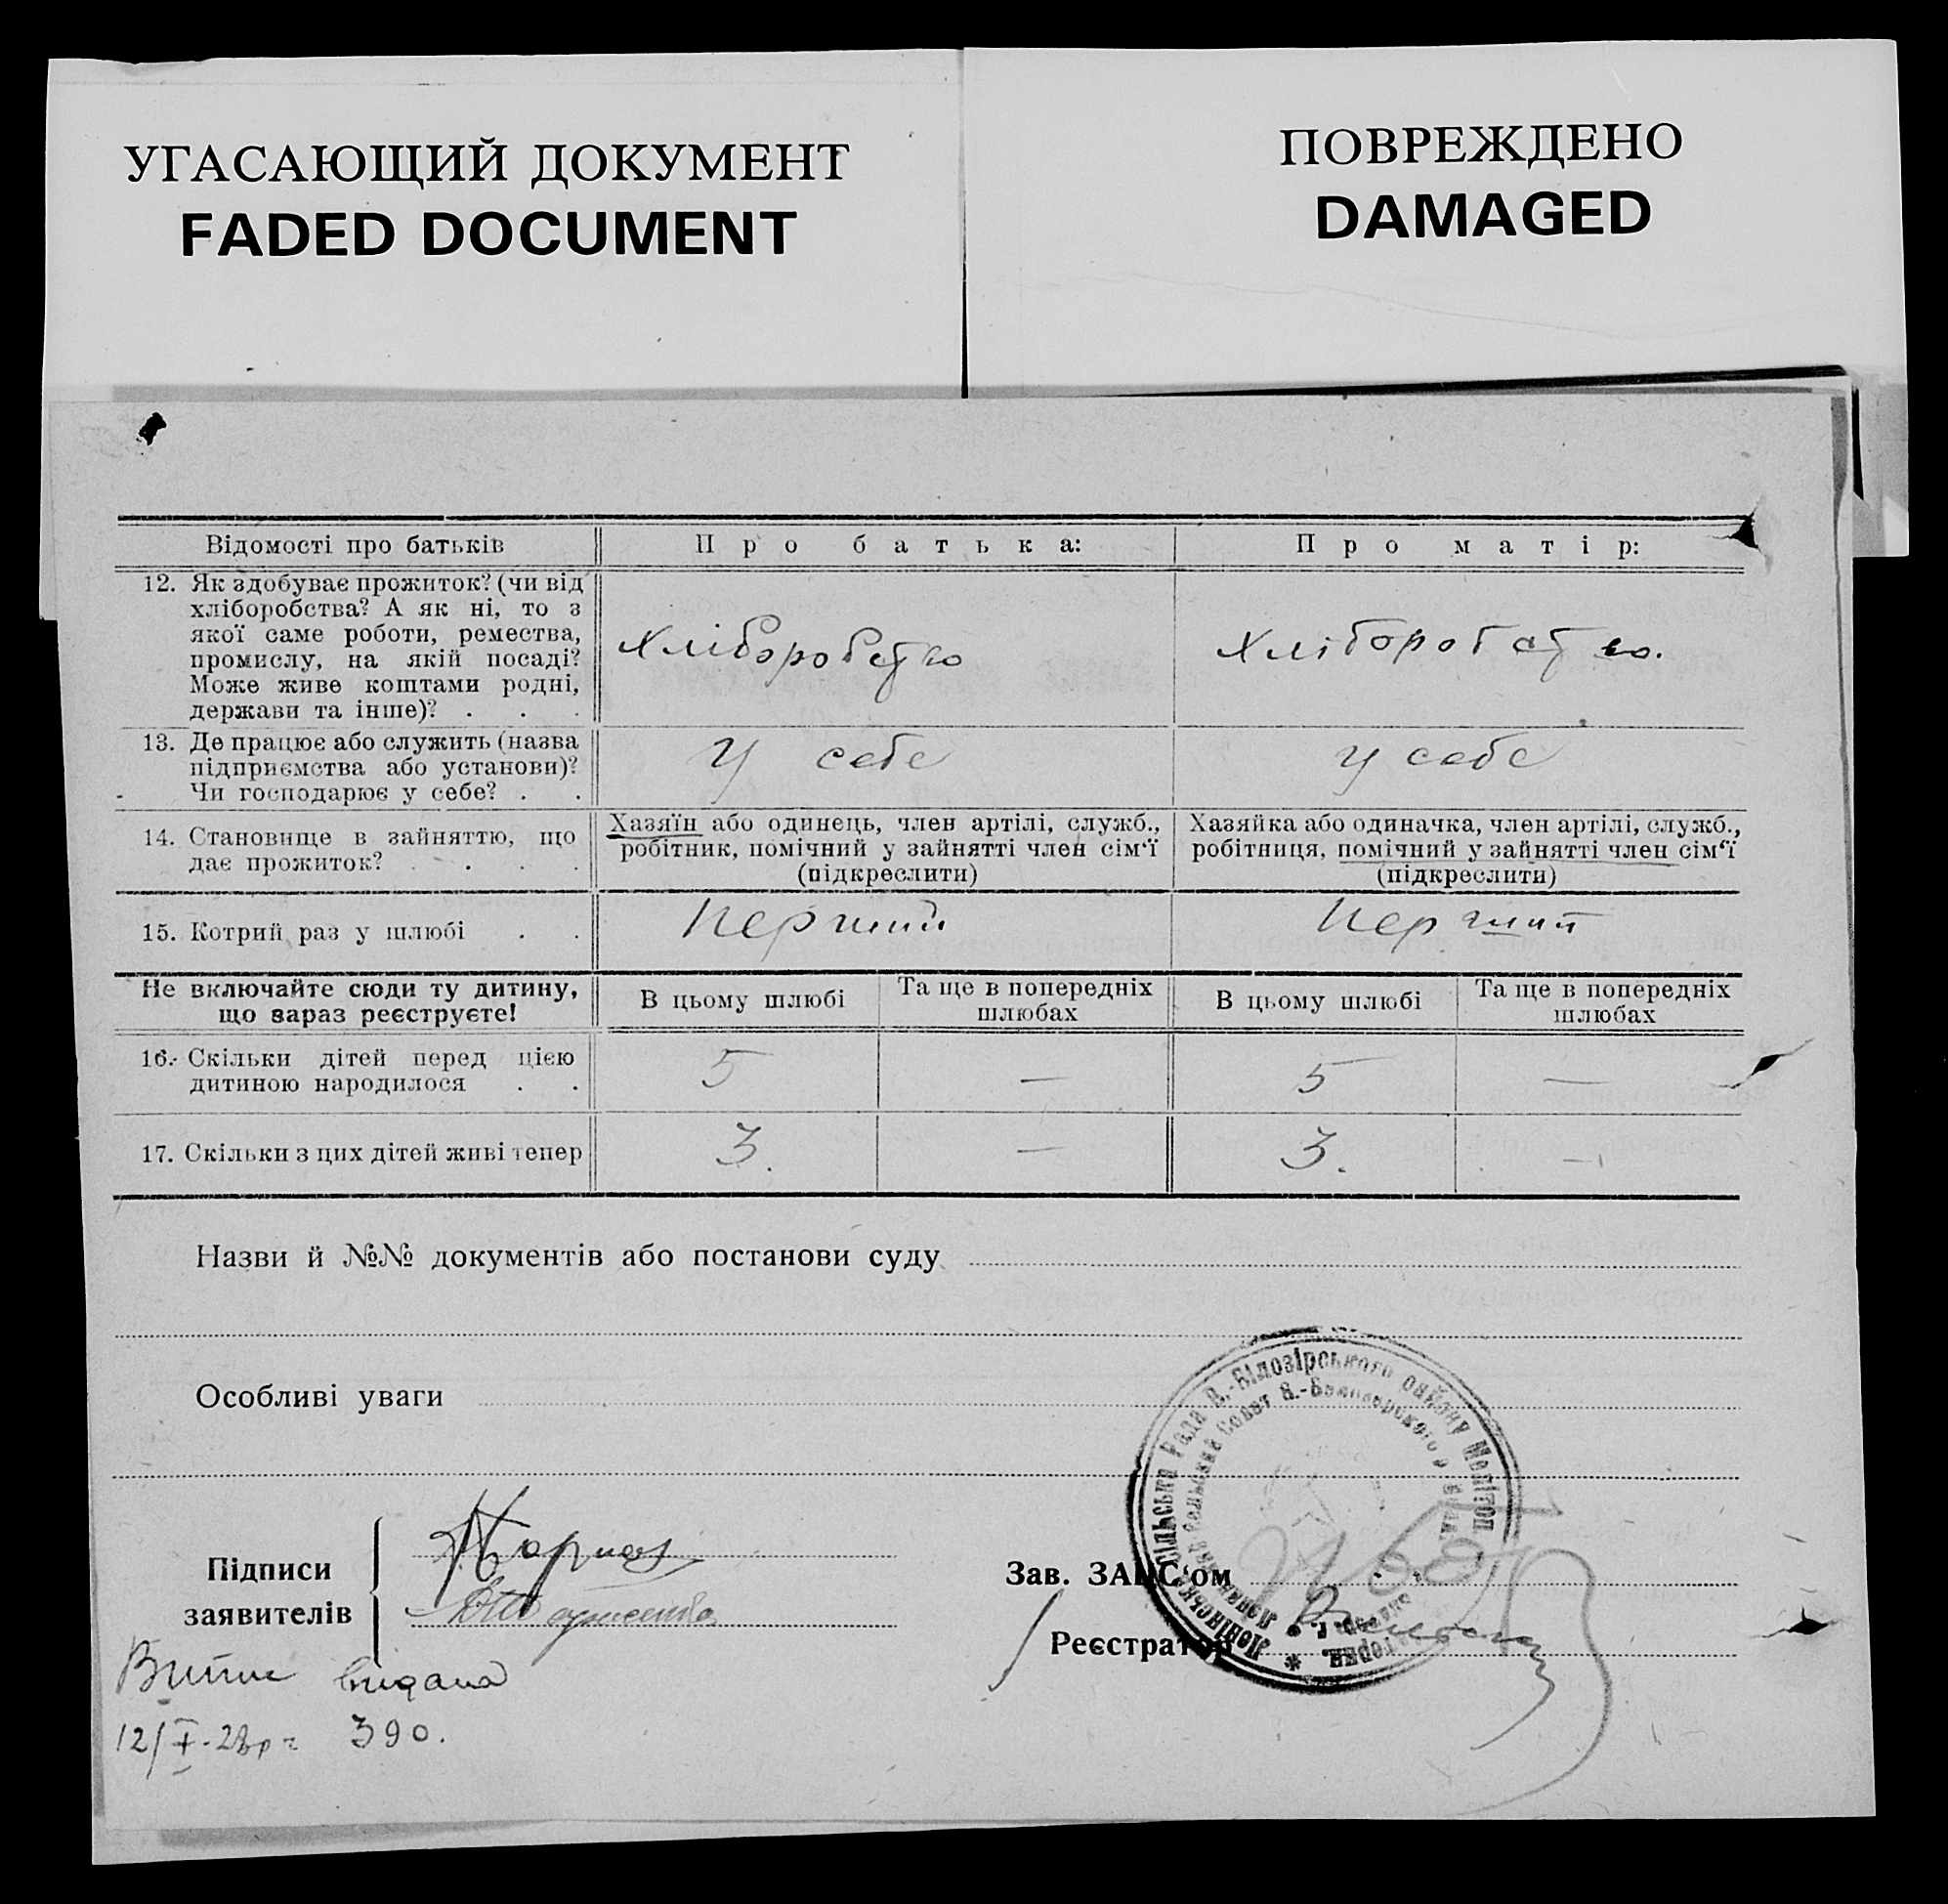 УГАСАЮЩИЙ ДОКУМЕНТ
FADED DOCUMENT
ПОВРЕЖДЕНО
DAMAGED
Відомості про батьків
Про батька:
Про матір:
12. Як здобуває прожиток? (чи від
хліборобства? А як ні, то з
якої саме роботи, ремества,
промислу, на якій посаді?
Може живе коштами родні,
держави та інше)? . . .
Хліборобство
Хліборобство.
13. Де працює або служить (назва
підприємства або установи)?
Чи господарює у себе? . .
У себе
У себе
14. Становище в зайняттю, що
дає прожиток? . . . .
Хазяїн або одинець, член артілі, служб.,
робітник, помічний у зайнятті член сім'ї
(підкреслити)
Хазяйка або одиначка, член артілі, служб.,
робітниця, помічний у зайнятті член сім'ї
(підкреслити)
15. Котрий раз у шлюбі . .
Перший
Перший
Не включайте сюди ту дитину,
що зараз реєструєте!
В цьому шлюбі
Та ще в попередніх
шлюбах
В цьому шлюбі
Та ще в попередніх
шлюбах
16. Скільки дітей перед цією
дитиною народилося . .
5
—
5
—
17. Скільки з цих дітей живі тепер
3.
—
3.
—
Назви й №№ документів або постанови суду
Особливі уваги
Сільська Рада В.-Білозірського району Меліто
Совет В.-Белозерского
Підписи
заявителів
Зав. ЗАГС'ом
Реєстратор
видана
390.